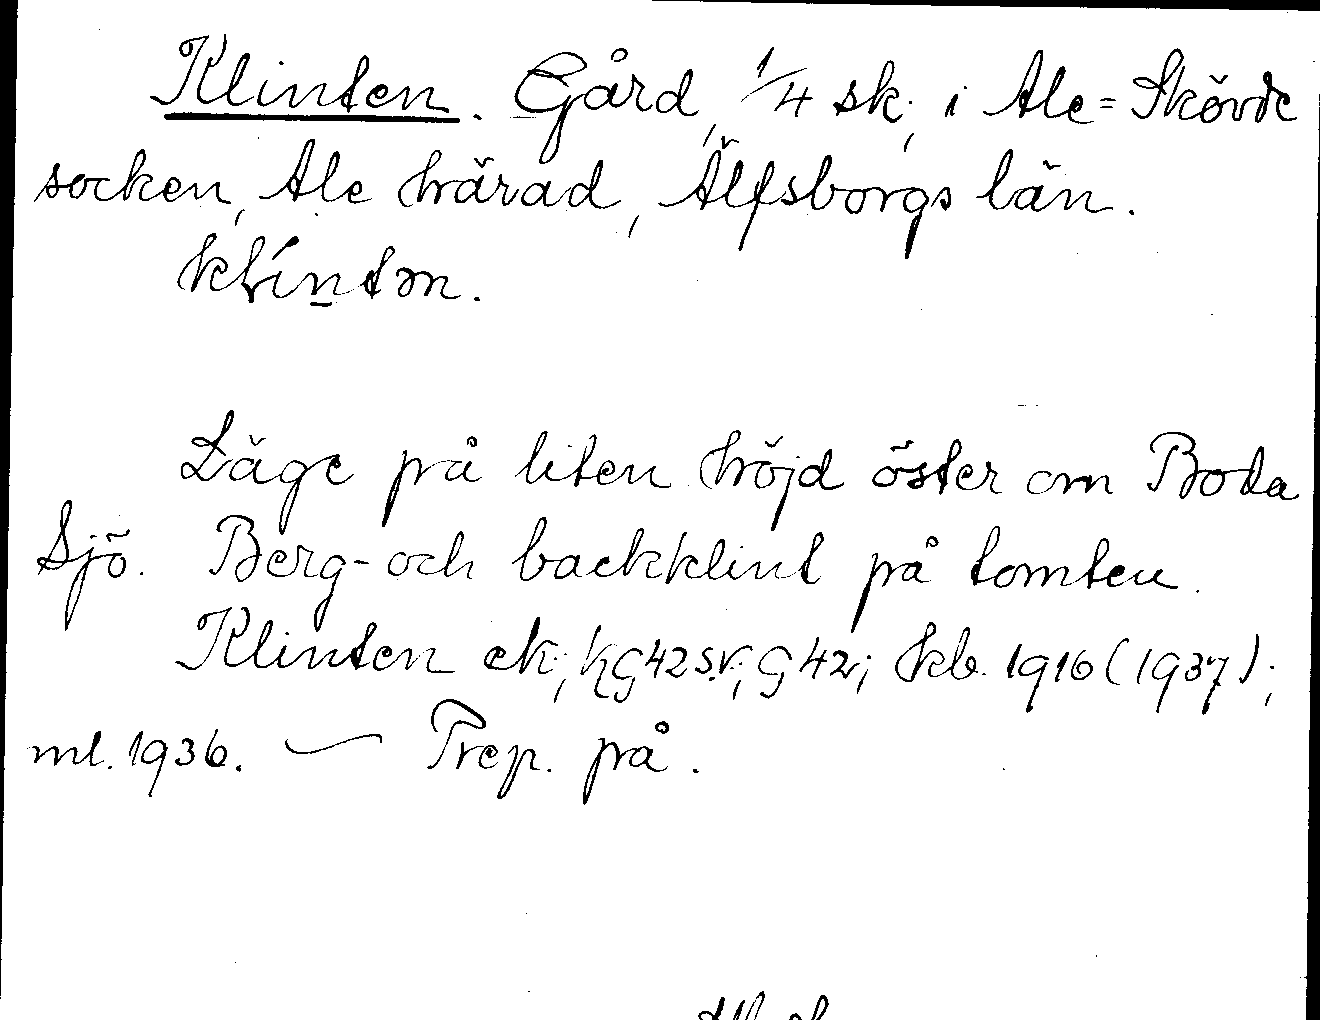 Klinten. Gård, 1/4 sk., i Ale=Skövde
socken, Ale härad, Älfsborgs län.
Läge på liten höjd öster om Boda
Sjö. Berg- och backklint på tomten.
Klinten ek; hG42sv; G42; kb. 1916 (1937);
ml. 1936. — Prep. på.